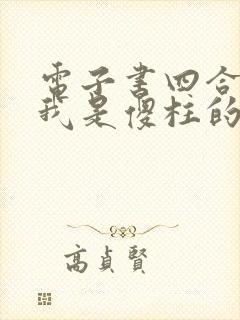 電子書四合
我是傻柱的
高貞賢